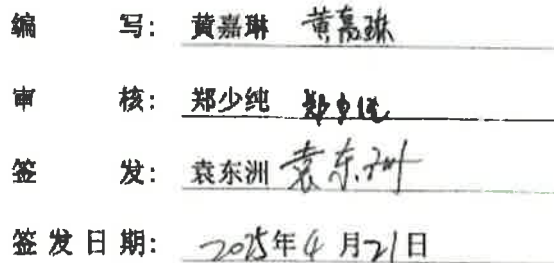 编写：黄嘉琳 黄嘉琳
审核：郑少纯 郑少纯
签发：袁东洲 袁东洲
签发日期：2025年4月21日